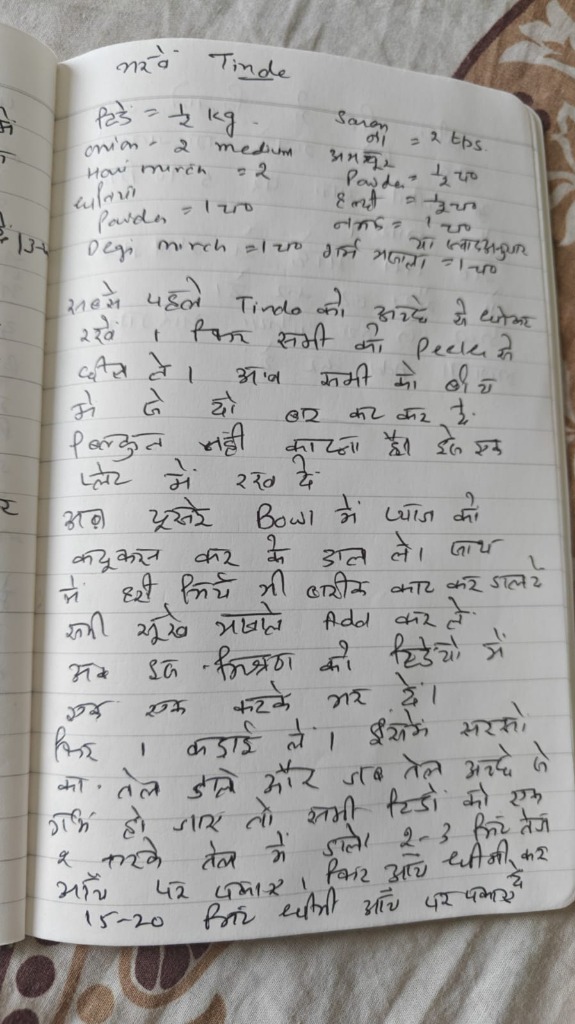 भरवें Tinde
टिंडे = ½ kg.
onion - 2 medium
Hari mirch = 2
धनिया
Powder = 1 च०
Degi mirch = 1 च०
Sarson
का = 2 tps.
अमचूर
Powder = ½ च०
हल्दी = ½ च०
नमक = 1 च०
या स्वादअनुसार
गर्म मसाला = 1 च०
सबसे पहले Tindo को अच्छे से धोकर
रखें । फिर सभी को Peeler से
छील ले । अब सभी को बीच
में से दो बार कट कर दें.
बिल्कुल नहीं काटना है। इसे एक
प्लेट में रख दें
अब दूसरे Bowl में प्याज को
कद्दूकस कर के डाल ले। साथ
में हरी मिर्च भी बारीक काट कर डाल दे
सभी सूखे मसाले Add कर ले.
अब इस मिश्रण को टिंडो में
एक एक करके भर दें।
फिर । कडाई ले । इसमें सरसो
का तेल डाले और जब तेल अच्छे से
गर्म हो जाए तो सभी टिंडो को एक
२ करके तेल में डाले। 2-3 मिंट तेज
आँच पर पकाए । फिर आँच धीमी कर दें
15-20 मिंट धीमी आँच पर पकाए